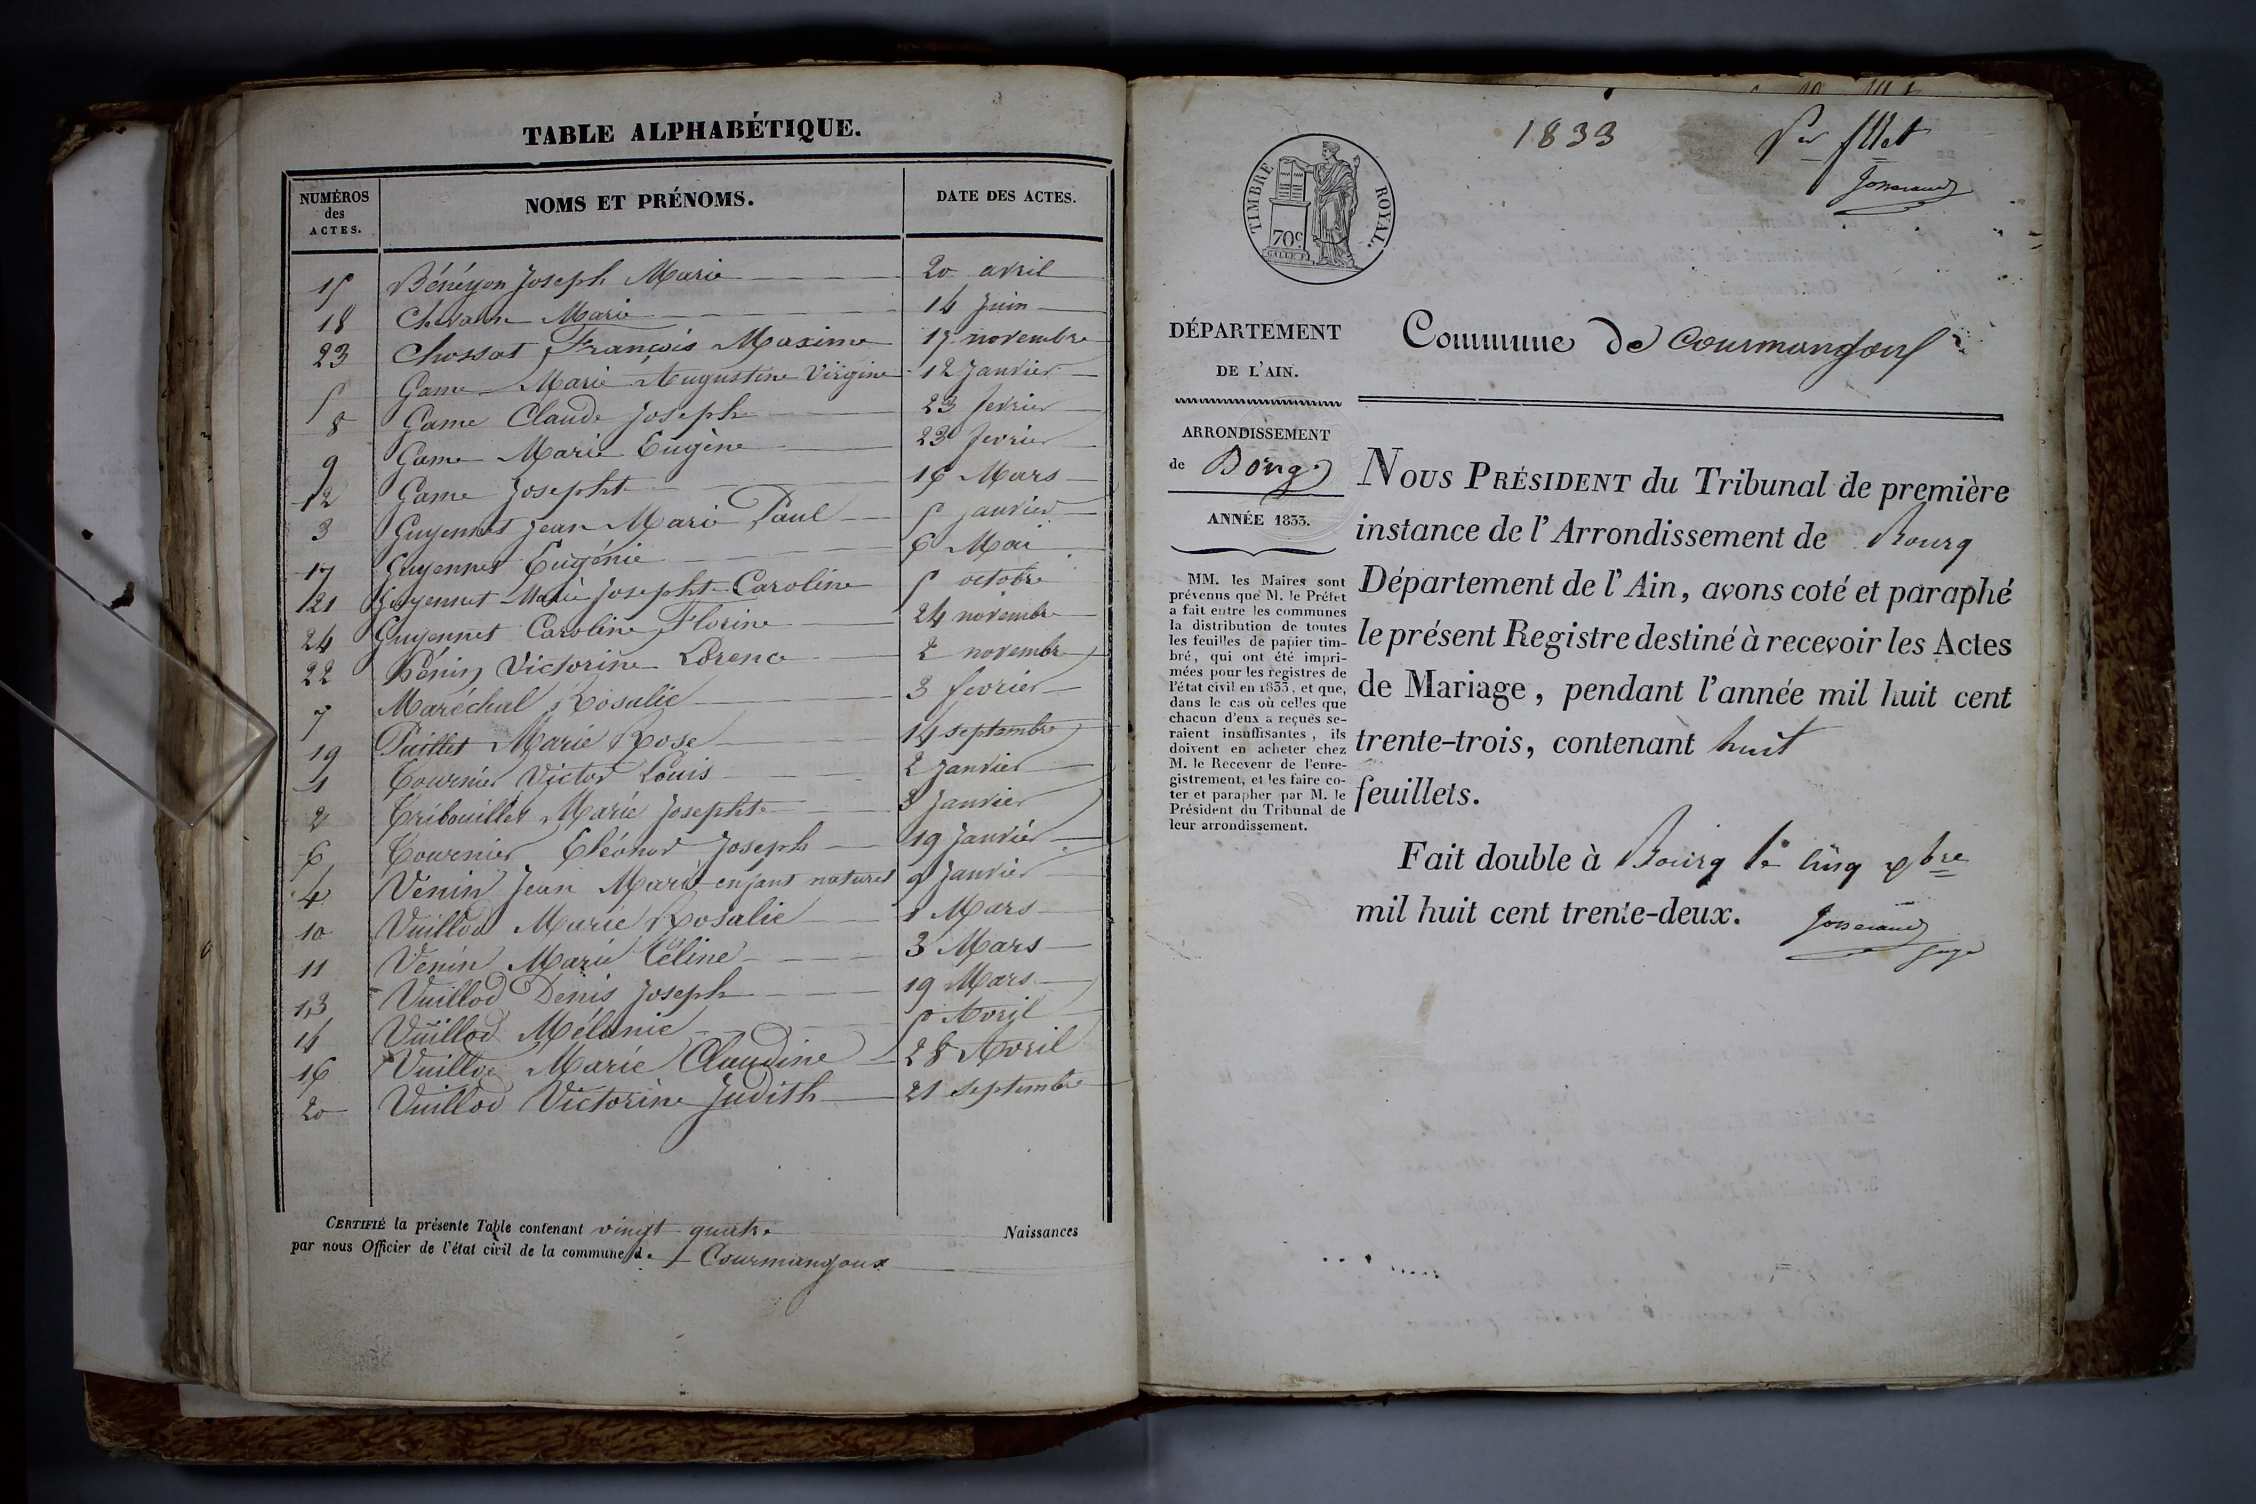 TABLE ALPHABÉTIQUE.
NUMÉROS des ACTES. NOMS ET PRÉNOMS. DATE DES ACTES.
15 Bénéyon Joseph Marie 20 avril
18 Chevann Marie 14 Juin
23 Chossat François Maxime 17 novembre
5 Game Marie Augustine Virgine 12 Janvier
8 Game Claude Joseph 23 fevrier
9 Game Marie Eugène 23 fevrier
12 Game Josepht 16 Mars
3 Guyennet Jean Marie Paul 5 janvier
17 Guyennet Eugénie 6 Mai
21 Guyennet Marie Josepht Caroline 5 octobre
24 Guyennet Caroline Florine 24 novembre
22 Hénin Victorine Lorence 2 novembre
7 Maréchal Rosalie 3 fevrier
19 Paillet Marie Rose 14 septembre
1 Tournier Victor Louis 2 Janvier
2 Tribouillet Marie Josephte 3 Janvier
6 Tournier Eléonor Joseph 19 Janvier
4 Vénin Jean Marie enfant naturel 9 Janvier
10 Vuillod Marie Rosalie 1 Mars
11 Venin Marie Céline 3 Mars
13 Vuillod Denis Joseph 19 Mars
14 Vuillod Mélanie 10 Avril
16 Vuillod Marie Claudine 28 Avril
20 Vuillod Victorine Judith 21 septembre
CERTIFIÉ la présente Table contenant vingt quatre Naissances
par nous Officier de l'état civil de la commune de Courmangoux
1833
Per fllet
Josserand
TIMBRE ROYAL.
70c
DÉPARTEMENT
DE L'AIN.
ARRONDISSEMENT
de Bourg
ANNÉE 1833.
MM. les Maires sont
prévenus que M. le Préfet
a fait entre les communes
la distribution de toutes
les feuilles de papier tim-
bré, qui ont été impri-
mées pour les registres de
l'état civil en 1833, et que,
dans le cas où celles que
chacun d'eux a reçues se-
raient insuffisantes, ils
doivent en acheter chez
M. le Receveur de l'enre-
gistrement, et les faire co-
ter et parapher par M. le
Président du Tribunal de
leur arrondissement.
Commune de Courmangoux
NOUS PRÉSIDENT du Tribunal de première
instance de l'Arrondissement de Bourg
Département de l'Ain, avons coté et paraphé
le présent Registre destiné à recevoir les Actes
de Mariage, pendant l'année mil huit cent
trente-trois, contenant huit
feuillets.
Fait double à Bourg le cinq xbre
mil huit cent trente-deux.
Josserand
juge